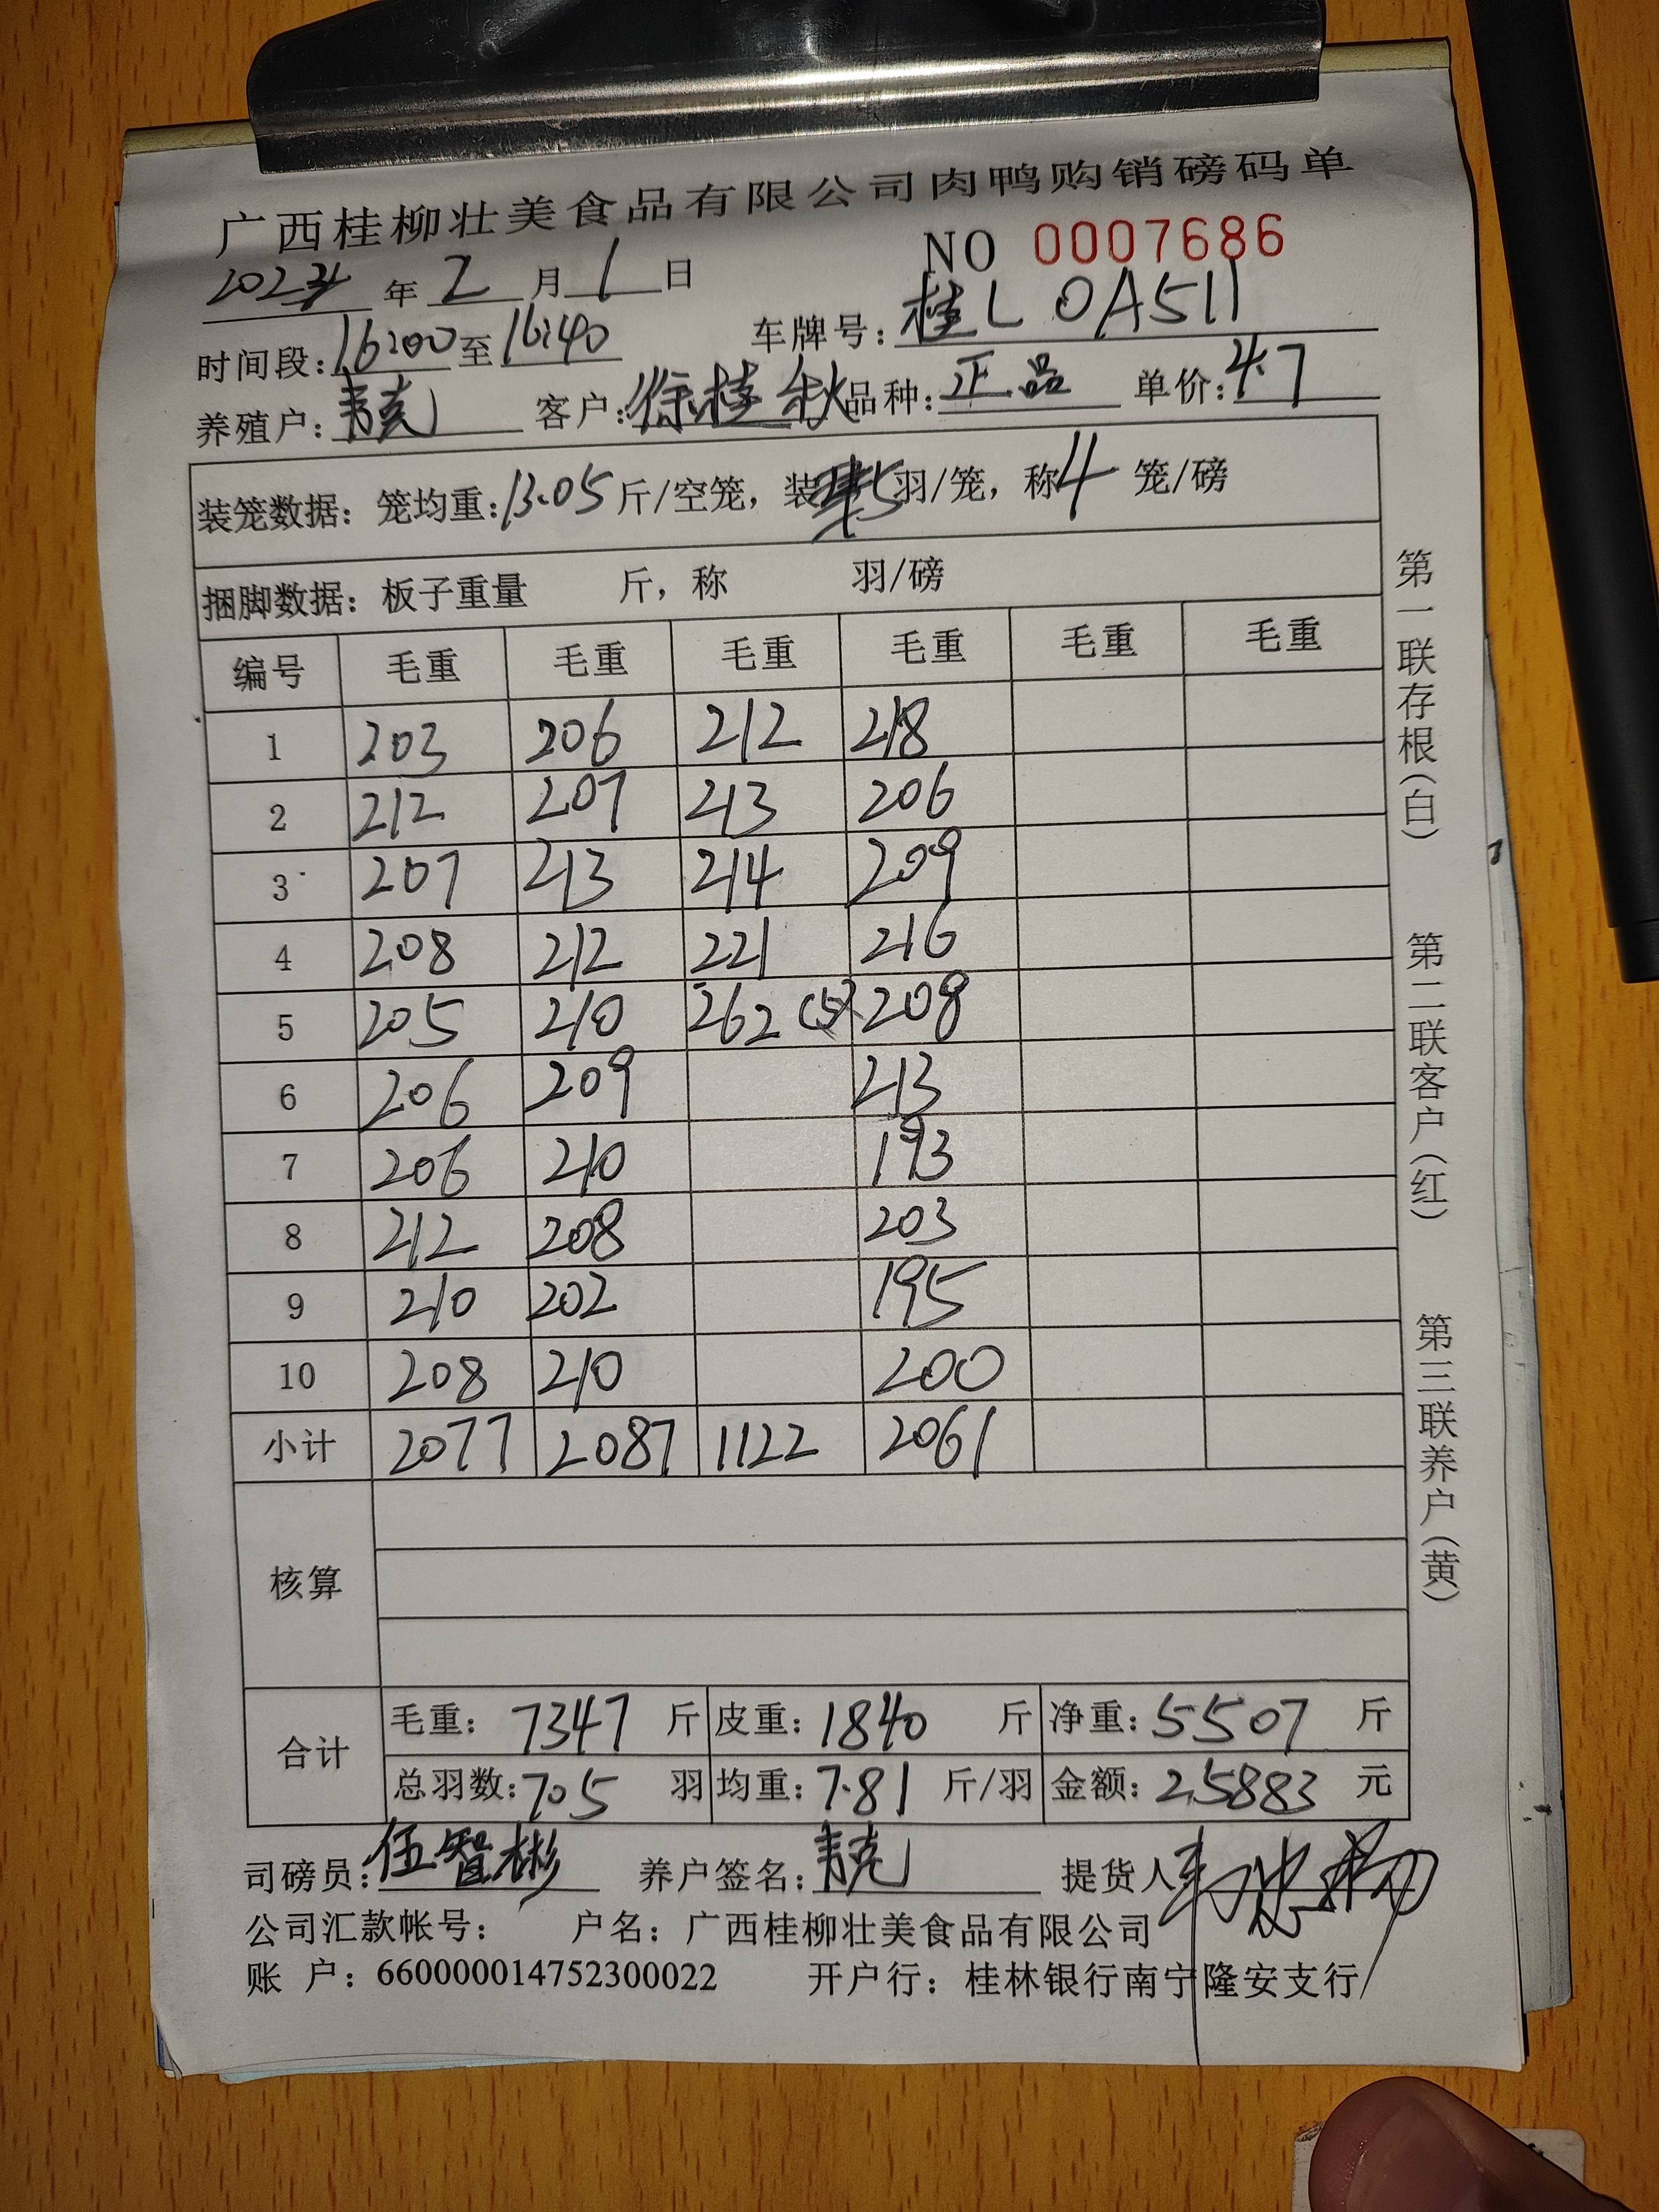 广西桂柳壮美食品有限公司肉鸭购销磅码单
NO 0007686
年 2 月 1 日
时间段：16:00 至 16:40 车牌号：桂L 0A511
养殖户：韦克 客户：徐桂秋 品种：正品 单价：4.7
装笼数据：笼均重：13.05 斤/空笼，装 5 羽/笼，称 4 笼/磅
捆脚数据：板子重量 斤，称 羽/磅
编号 毛重 毛重 毛重 毛重 毛重 毛重
1 203 206 212 218
2 212 207 213 206
3 207 213 214 209
4 208 212 221 216
5 205 210 262 (5) 208
6 206 209 213
7 206 210 193
8 212 208 203
9 210 202 195
10 208 210 200
小计 2077 2087 1122 2061
核算
合计 毛重：7347 斤 皮重：1840 斤 净重：5507 斤
总羽数：705 羽 均重：7.81 斤/羽 金额：25883 元
司磅员：伍智彬 养户签名：韦克 提货人
公司汇款帐号： 户名：广西桂柳壮美食品有限公司
账 户：660000014752300022 开户行：桂林银行南宁隆安支行
第一联存根（白） 第二联客户（红） 第三联养户（黄）